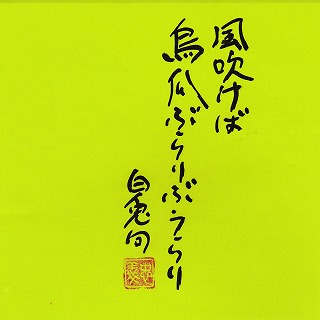 風吹けば
烏瓜ぶらりぶうらり
白兎句